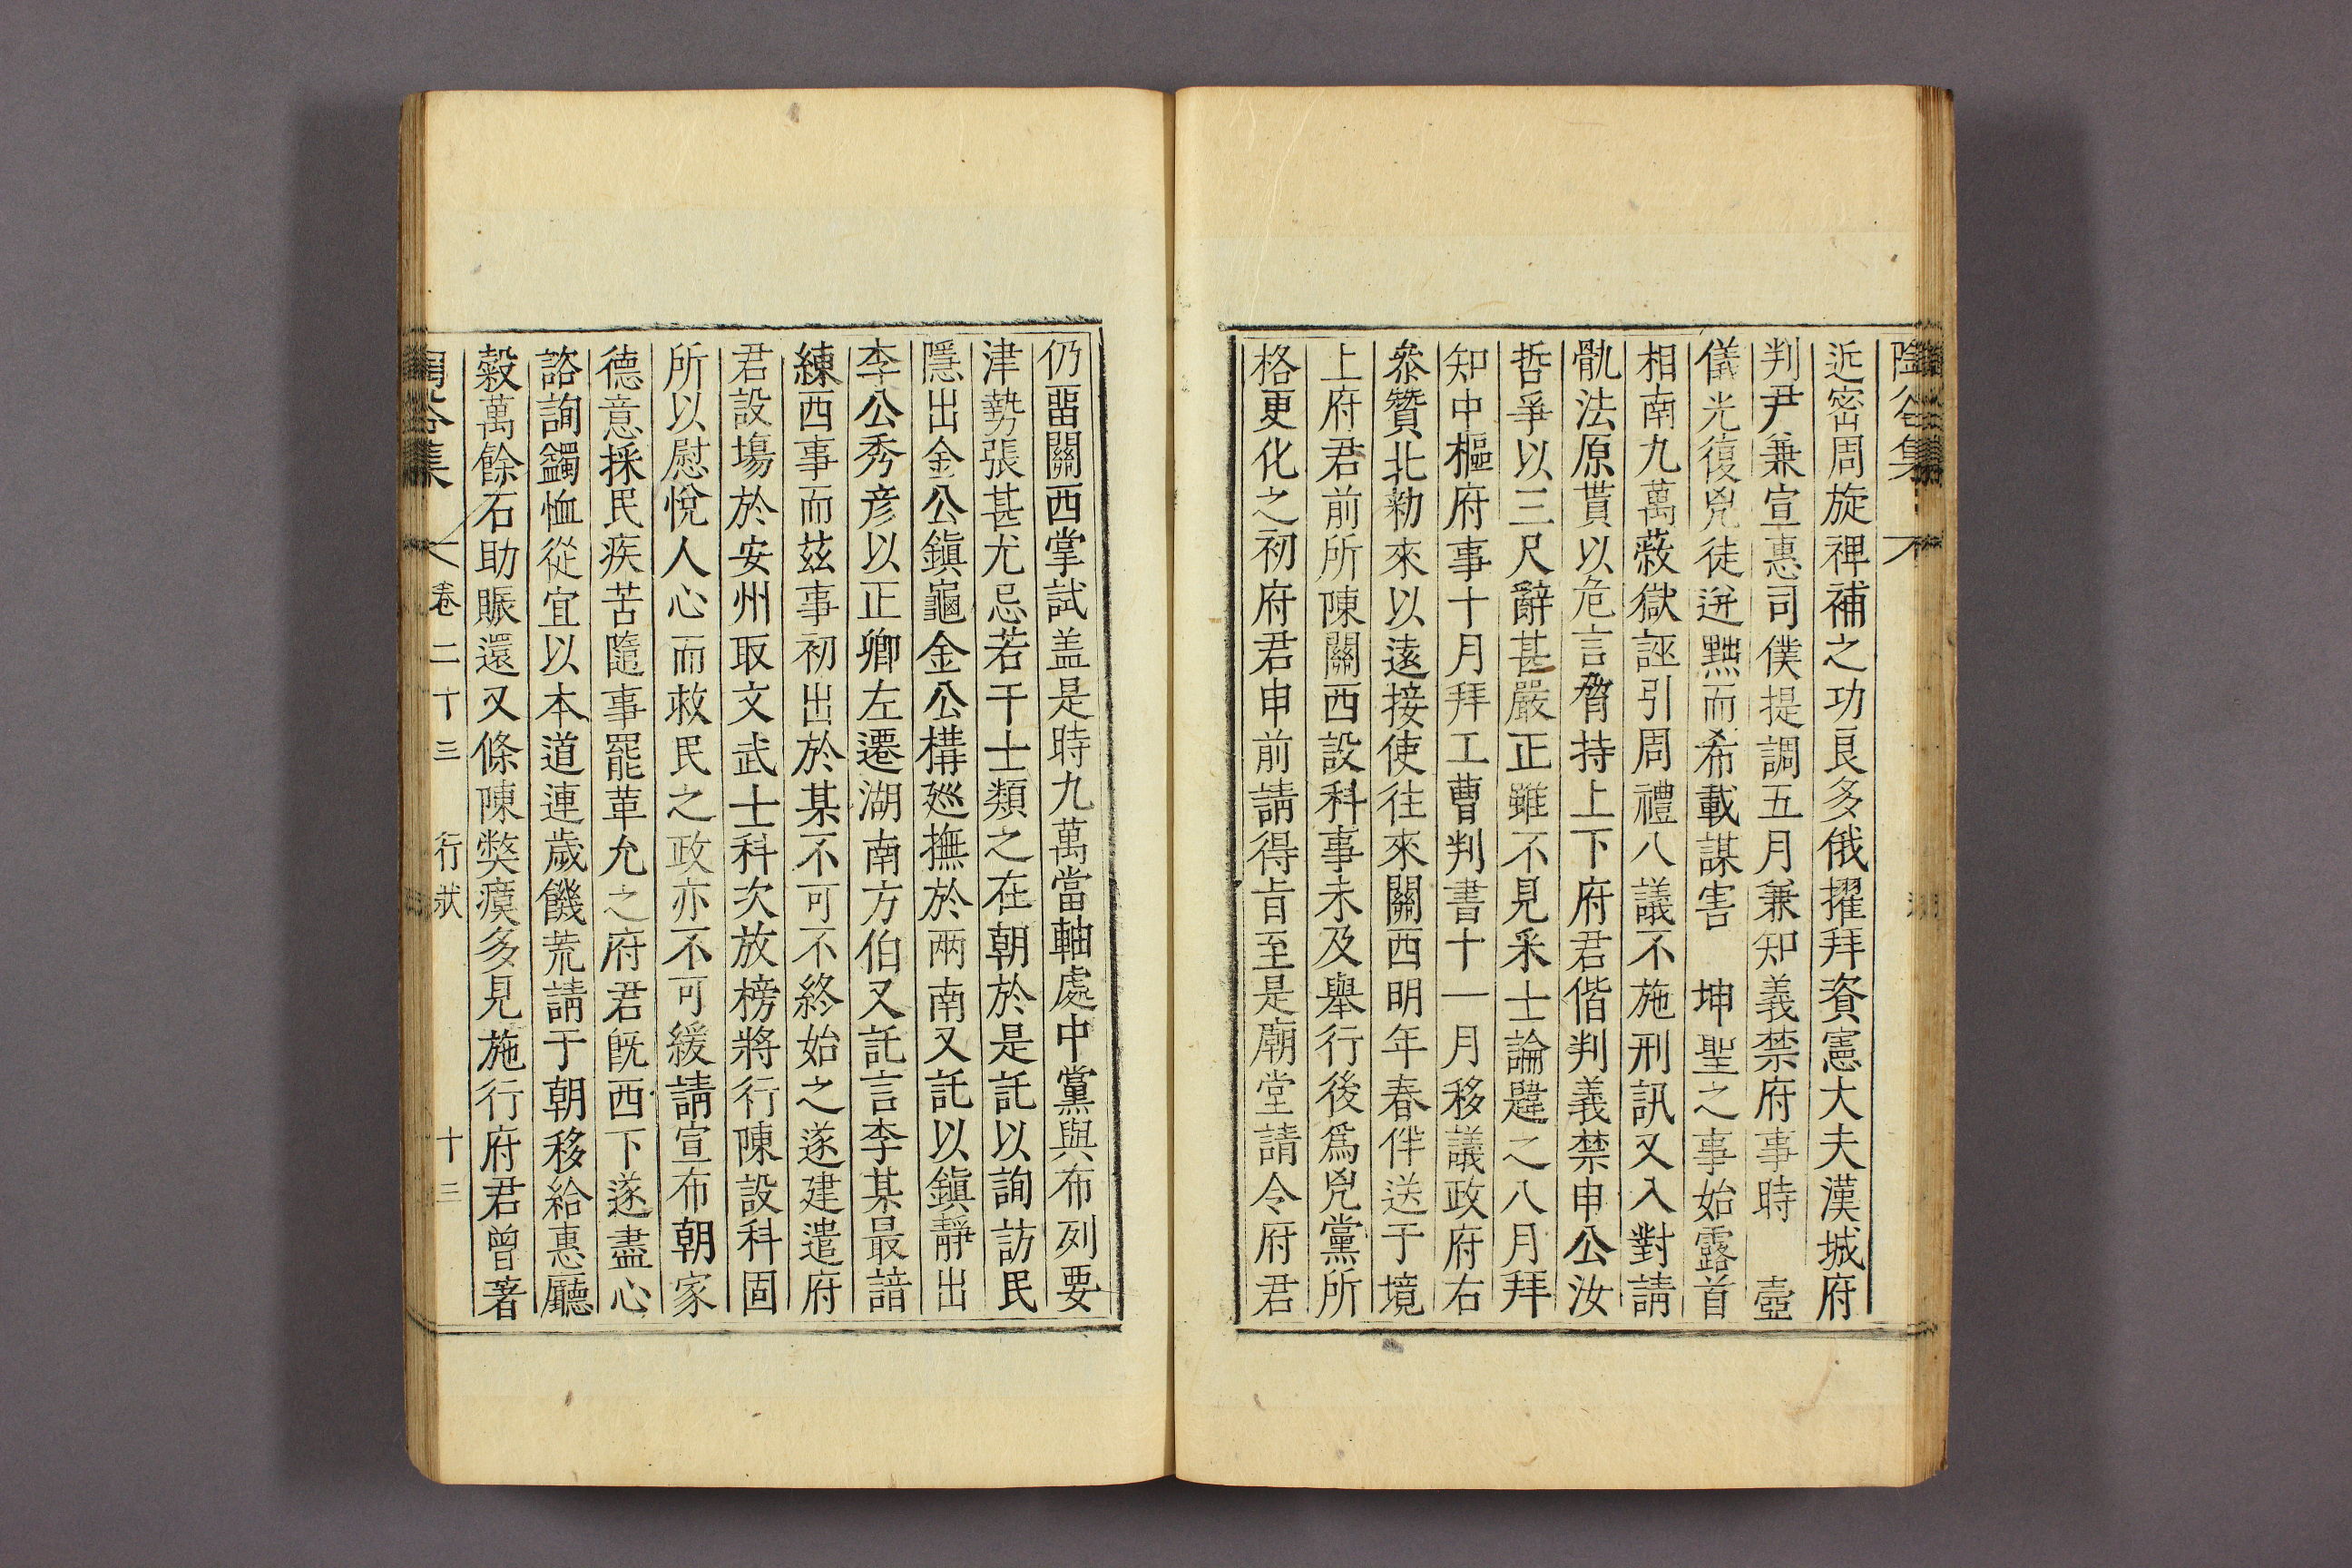 陶谷集
近密周旋裨補之功良多俄擢拜資憲大夫漢城府
判尹兼宣惠司僕提調五月兼知義禁府事時 壼
儀光復兇徒迸黜而希載謀害 坤聖之事始露首
相南九萬蔽獄誣引周禮八議不施刑訊又入對請
骫法原貰以危言脅持上下府君偕判義禁申公汝
哲爭以三尺辭甚嚴正雖不見采士論韙之八月拜
知中樞府事十月拜工曹判書十一月移議政府右
叅贊北勑來以遠接使往來關西明年春伴送于境
上府君前所陳關西設科事未及舉行後爲兇黨所
格更化之初府君申前請得旨至是廟堂請令府君
仍畱關西掌試盖是時九萬當軸處中黨與布列要
津勢張甚尤忌若干士類之在朝於是託以詢訪民
隱出金公鎭龜金公構廵撫於兩南又託以鎭靜出
李公秀彦以正卿左遷湖南方伯又託言李某最諳
練西事而茲事初出於某不可不終始之遂建遣府
君設塲於安州取文武士科次放榜將行陳設科固
所以慰悅人心而救民之政亦不可緩請宣布朝家
德意採民疾苦隨事罷革允之府君旣西下遂盡心
諮詢蠲恤從宜以本道連歲饑荒請于朝移給惠廳
穀萬餘石助賑還又條陳獘瘼多見施行府君曾著
陶谷集 卷二十三 行狀 十三